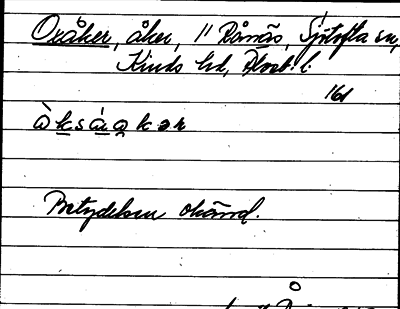 Oxåker, åker, 11 Rånäs, Sjötofta sn,
Kinds hd, Älvsb. l.
161
Betydelsen okänd.